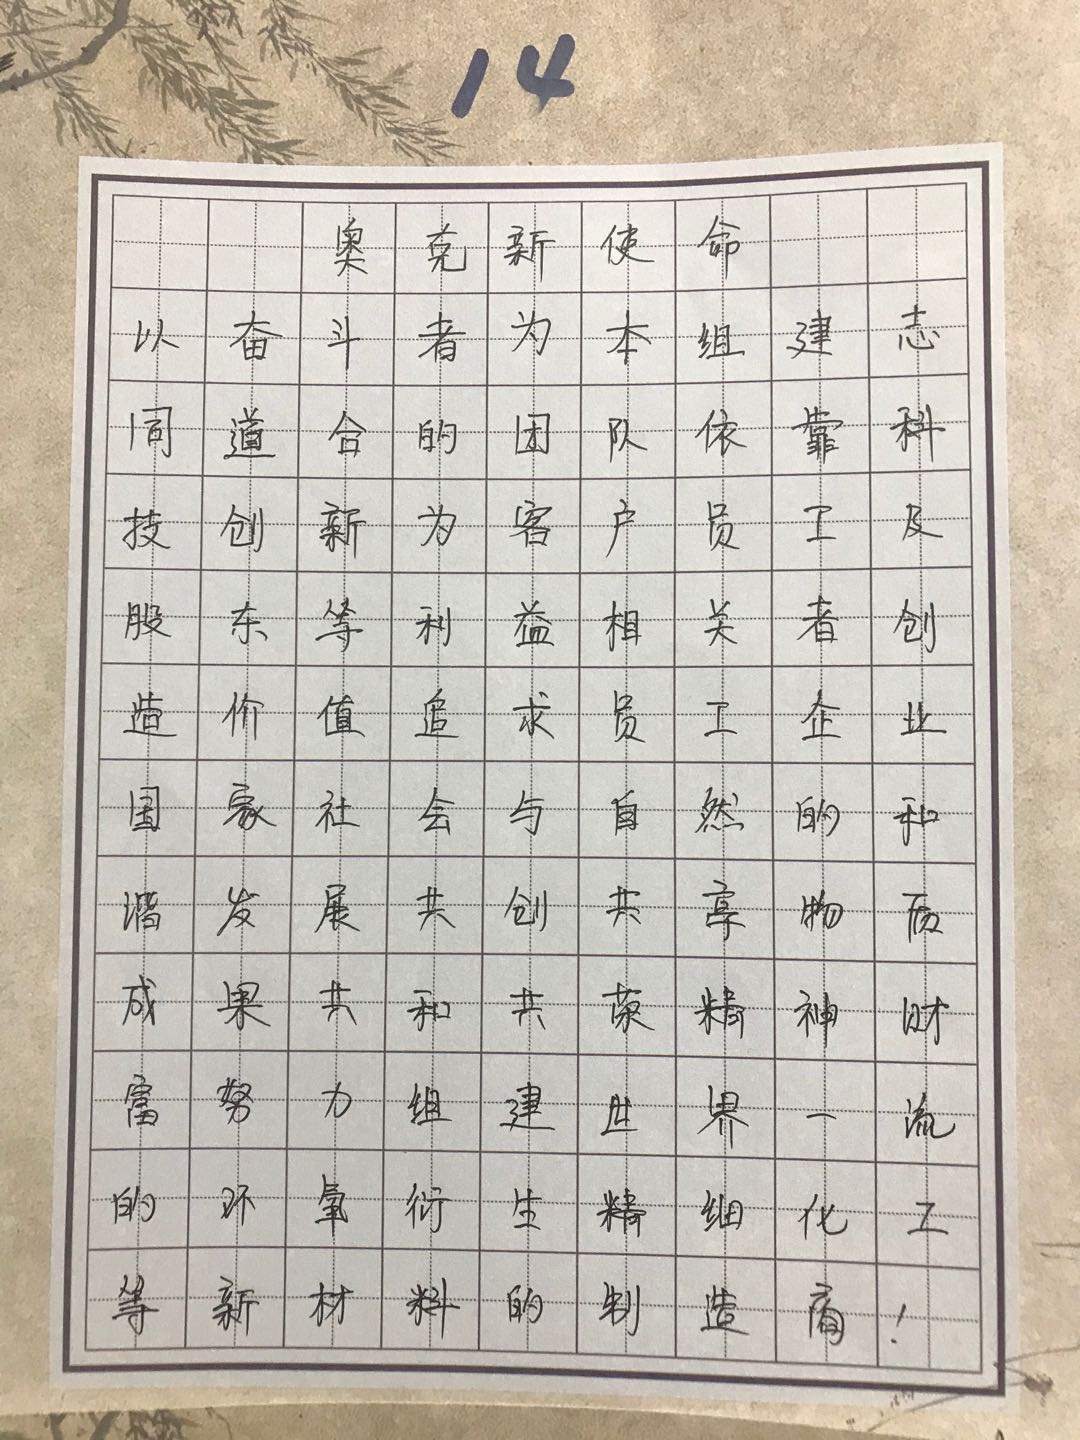 14
奥克新使命
以奋斗者为本组建志
同道合的团队依靠科
技创新为客户员工及
股东等利益相关者创
造价值追求员工企业
国家社会与自然的和
谐发展共创共享物质
成果共和共荣精神财
富努力组建世界一流
的环氧衍生精细化工
等新材料的制造商!